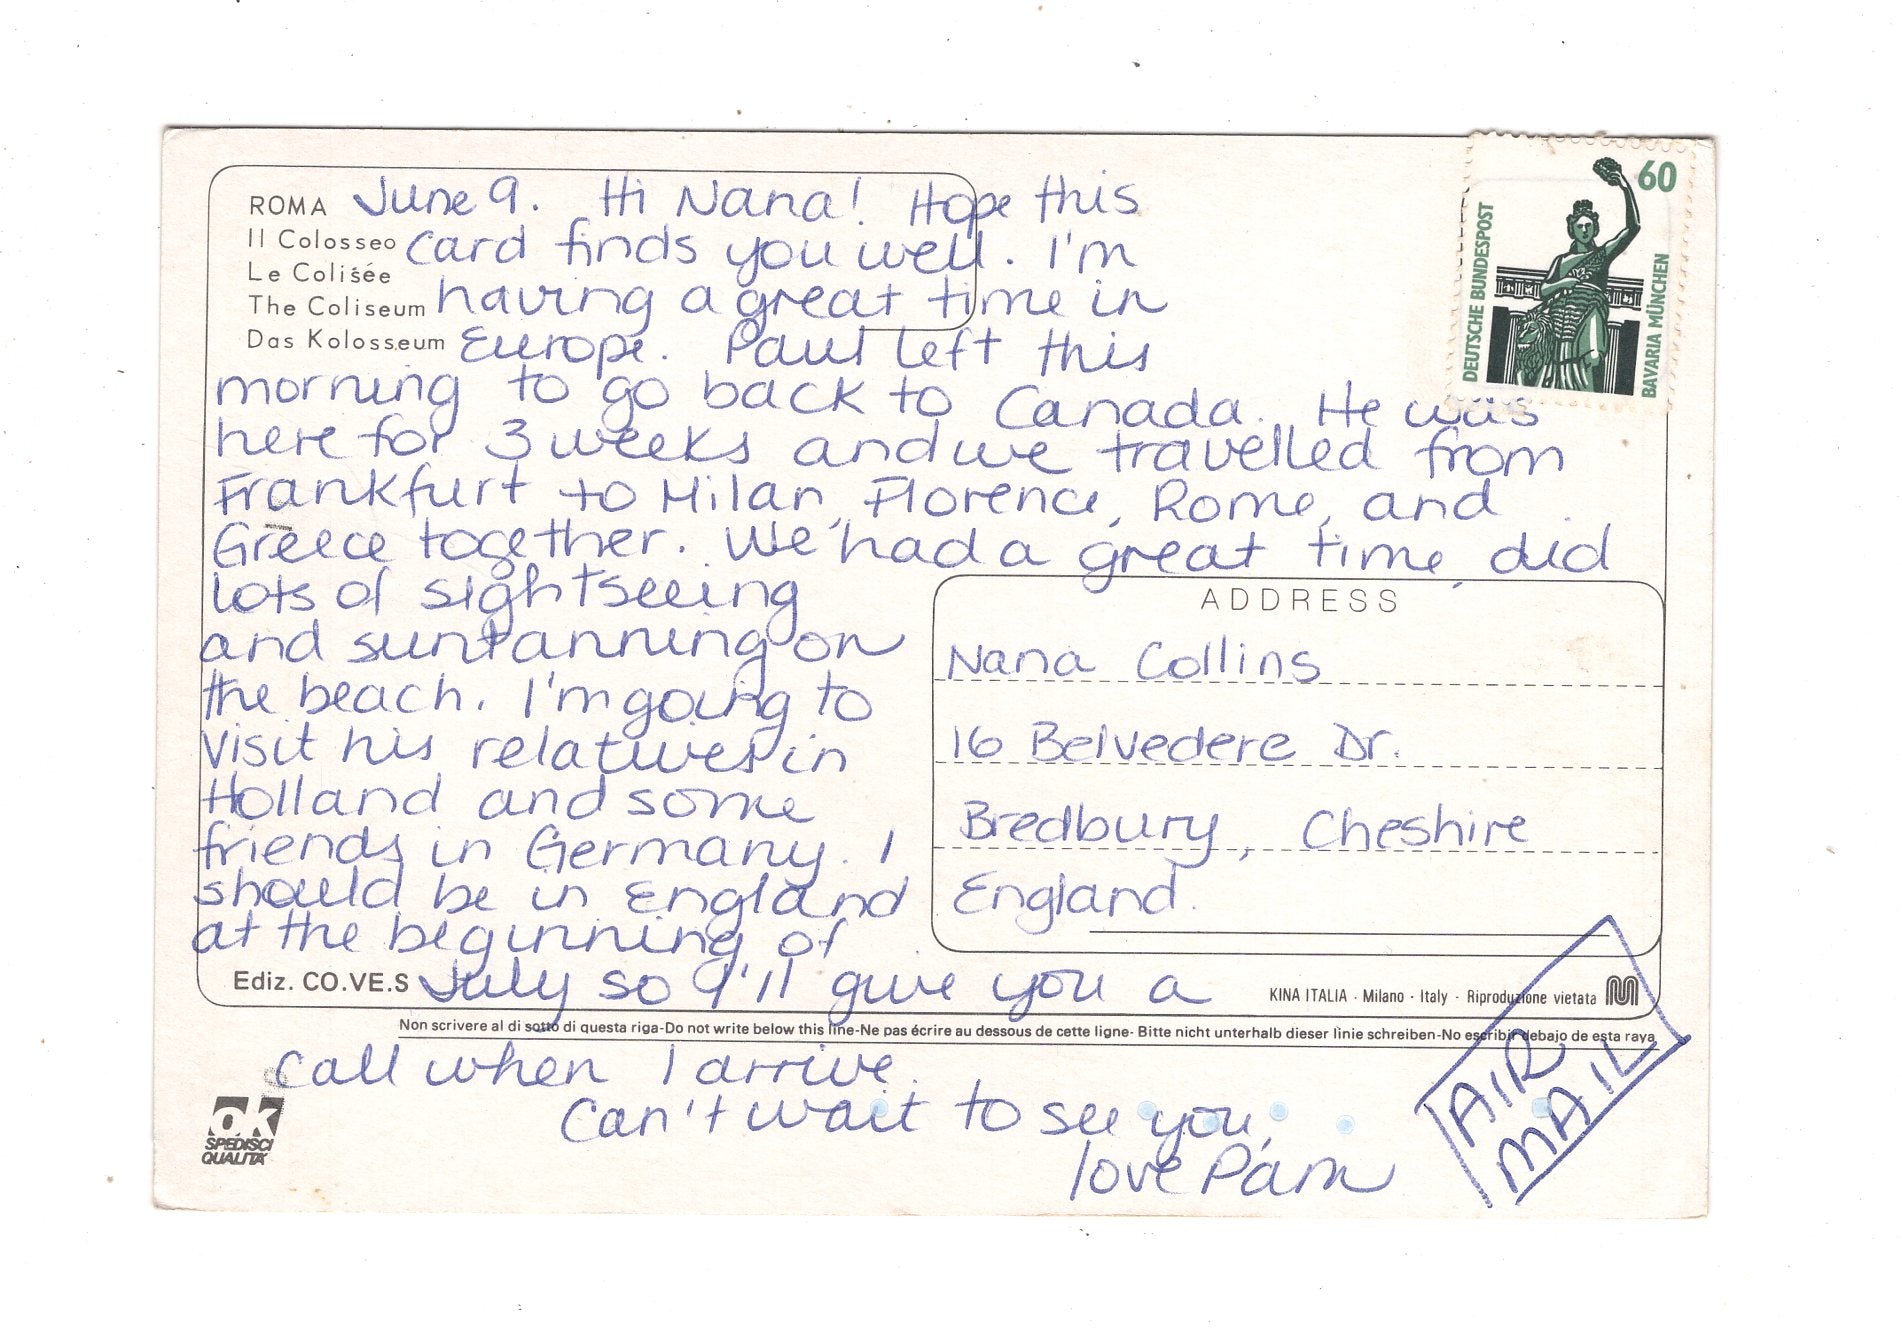 ROMA
Il Colosseo
Le Colisée
The Coliseum
Das Kolosseum
June 9. Hi Nana! Hope this
card finds you well. I'm
having a great time in
Europe. Paul left this
morning to go back to Canada. He was
here for 3 weeks and we travelled from
Frankfurt to Milan, Florence, Rome, and
Greece together. We had a great time, did
lots of sightseeing
and suntanning on
the beach. I'm going to
visit his relatives in
Holland and some
friends in Germany. I
should be in England
at the beginning of
July so I'll give you a
call when I arrive.
Can't wait to see you,
love Pam
60
DEUTSCHE BUNDESPOST
BAVARIA MÜNCHEN
ADDRESS
Nana Collins
16 Belvedere Dr.
Bredbury, Cheshire
England.
Ediz. CO.VE.S
KINA ITALIA · Milano · Italy · Riproduzione vietata
Non scrivere al di sotto di questa riga-Do not write below this line-Ne pas écrire au dessous de cette ligne- Bitte nicht unterhalb dieser linie schreiben-No escribir debajo de esta raya
ok
SPEDISCI
QUALITA'
AIR
MAIL